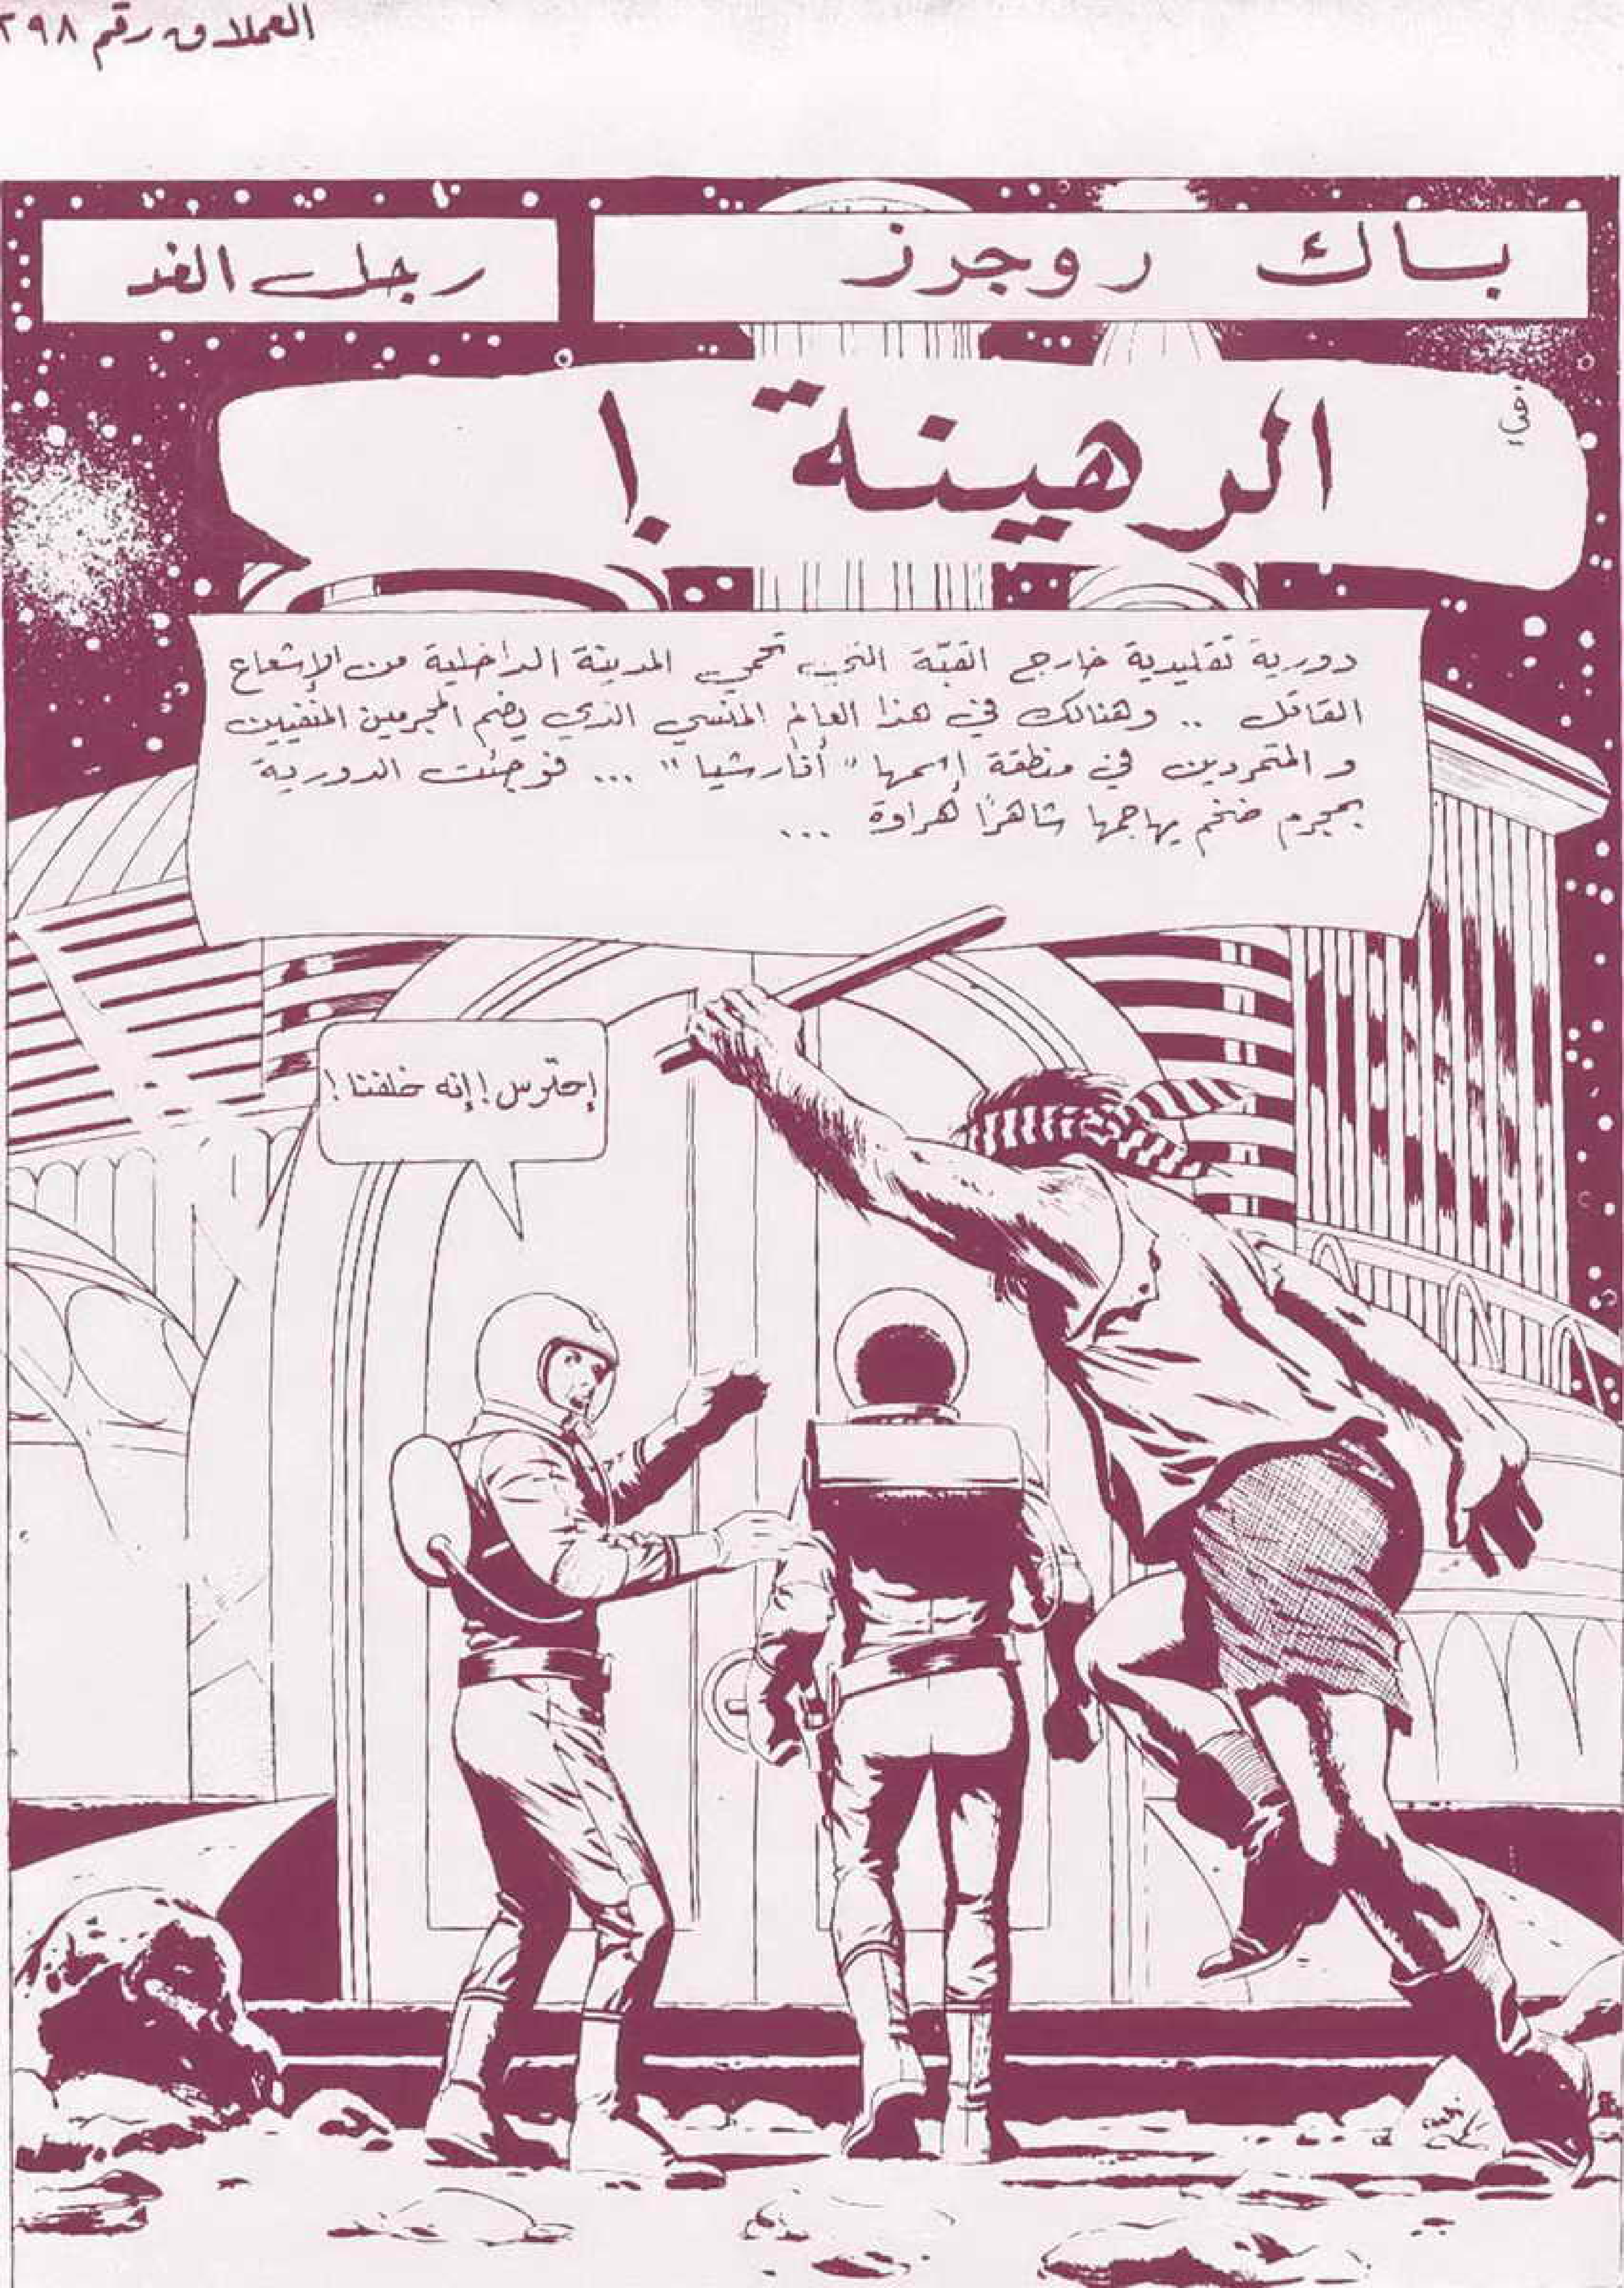 العملاق رقم ٢٩٨
باك روجرز
رجل الغد
في
الرهينة !
دورية تقليدية خارج القبّة التي تحمي المدينة الداخلية من الإشعاع
القاتل .. وهنالك في هذا العالم المنسي الذي يضم المجرمين المنفيين
و المتمردين في منطقة إسمها " أنارشيا " ... فوجئت الدورية
بمجرم ضخم يهاجمها شاهرًا هراوة ...
إحترّس ! إنه خلفنا !